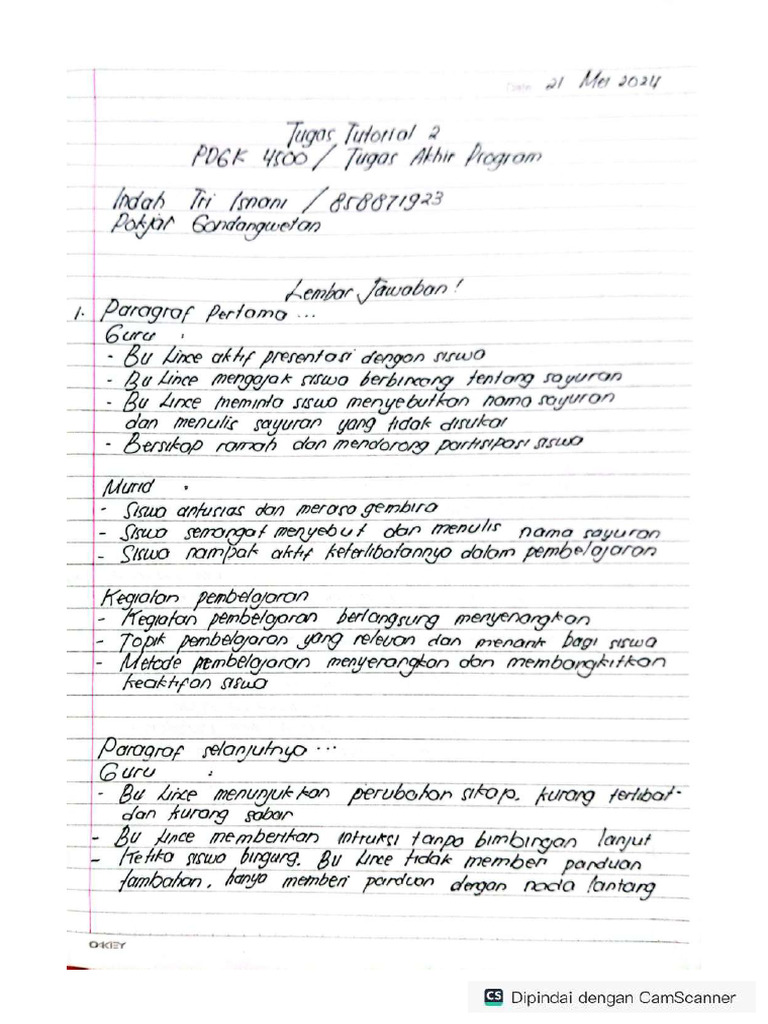 Date 21 Mei 2024
Tugas Tutorial 2
PDGK 4500 / Tugas Akhir Program
Indah Tri Isnani / 858871923
Pokjar Gondangwetan
Lembar Jawaban !
1. Paragraf Pertama ...
Guru :
- Bu Lince aktif presentasi dengan siswa
- Bu Lince mengajak siswa berbincang tentang sayuran
- Bu Lince meminta siswa menyebutkan nama sayuran
dan menulis sayuran yang tidak disukai
- Bersikap ramah dan mendorong partisipasi siswa
Murid :
- Siswa antusias dan merasa gembira
- Siswa semangat menyebut dan menulis nama sayuran
- Siswa nampak aktif keterlibatannya dalam pembelajaran
Kegiatan pembelajaran
- Kegiatan pembelajaran berlangsung menyenangkan
- Topik pembelajaran yang relevan dan menarik bagi siswa
- Metode pembelajaran menyenangkan dan membangkitkan
keaktifan siswa
Paragraf selanjutnya ...
Guru :
- Bu Lince menunjukkan perubahan sikap. kurang terlibat
dan kurang sabar
- Bu Lince memberikan intruksi tanpa bimbingan lanjut
- Ketika siswa bingung. Bu Lince tidak memberi panduan
tambahan, hanya memberi panduan dengan nada lantang
OKEY
CS Dipindai dengan CamScanner